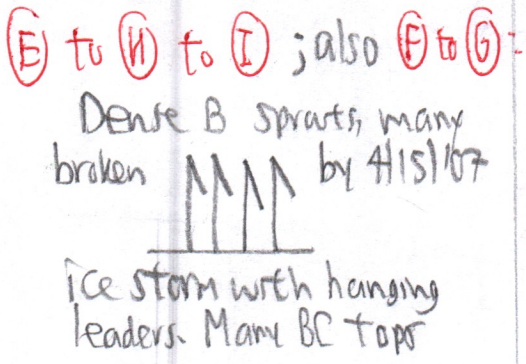 E to H to I ; also F to G :
Dense B sprouts, many
broken by 4/15/07
ice storm with hanging
leaders. Many BC tops